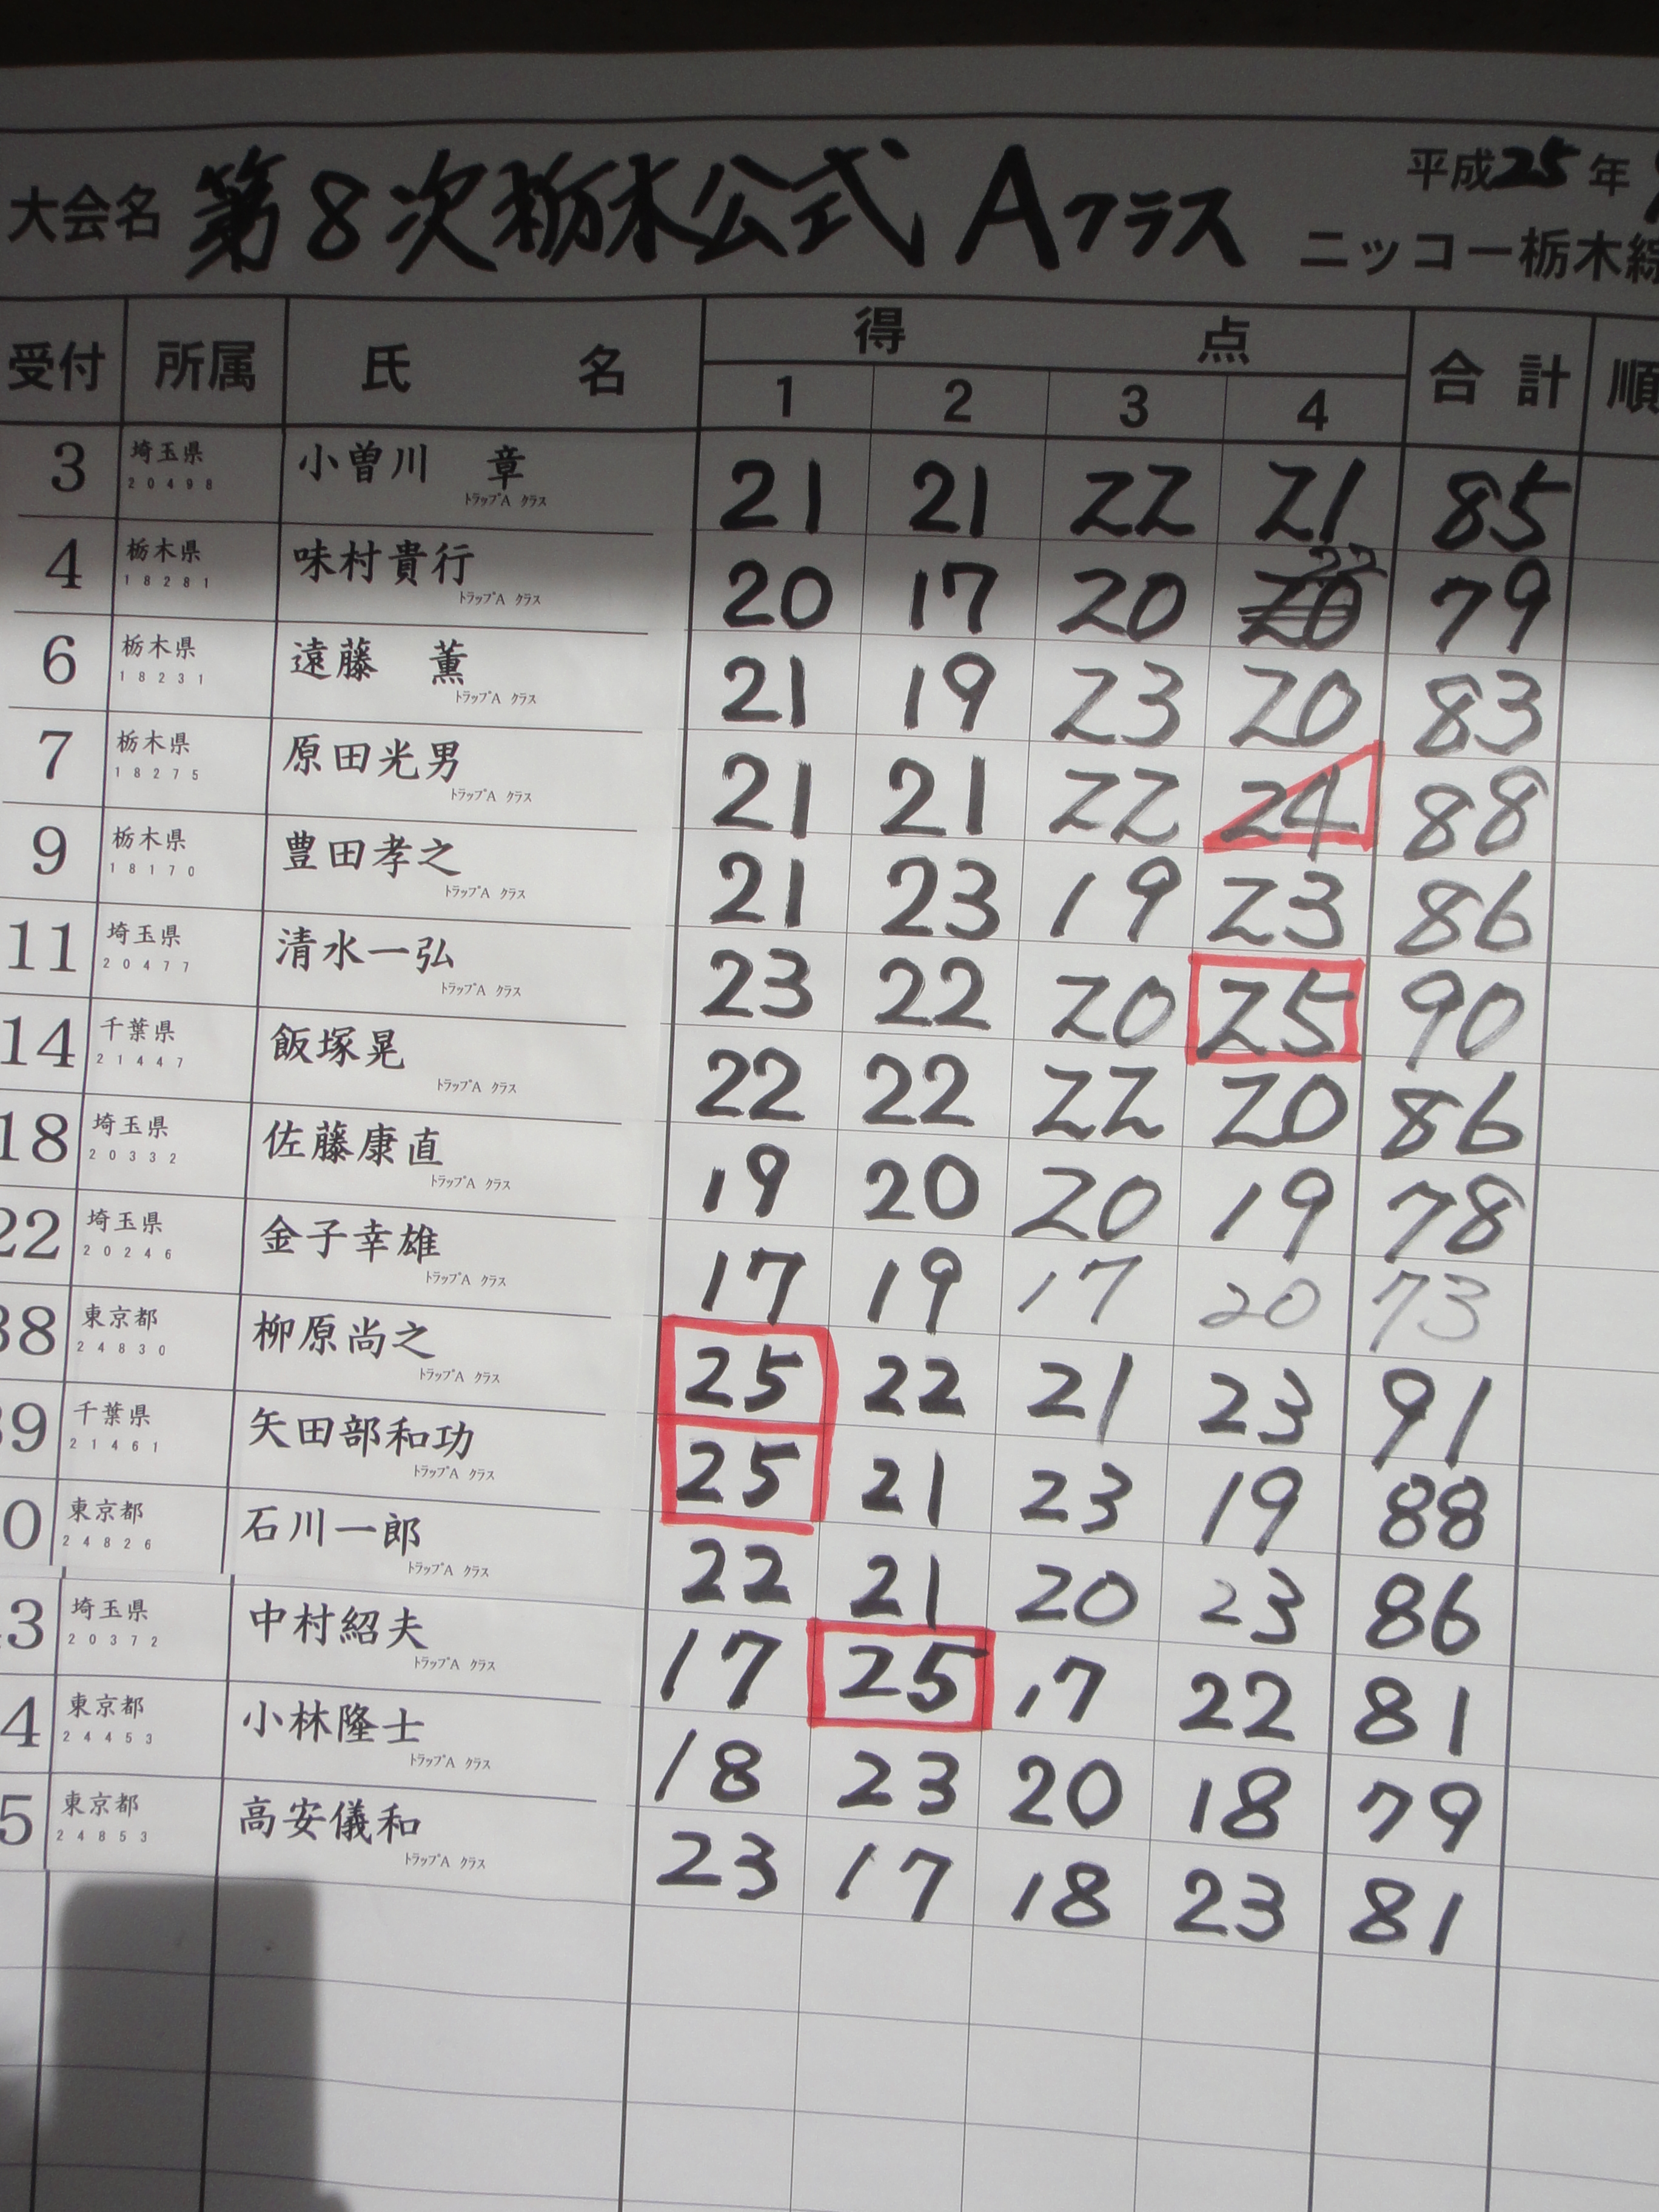 大会名 第8次栃木公式 Aクラス 平成25年
ニッコー栃木綜
受付 所属 氏名 得点 合計 順
1 2 3 4
3 埼玉県 小曽川 章 21 21 22 21 85
20498 トラップA クラス
4 栃木県 味村貴行 20 17 20 20 22 79
18281 トラップA クラス
6 栃木県 遠藤 薫 21 19 23 20 83
18231 トラップA クラス
7 栃木県 原田光男 21 21 22 24 88
18275 トラップA クラス
9 栃木県 豊田孝之 21 23 19 23 86
18170 トラップA クラス
11 埼玉県 清水一弘 23 22 20 25 90
20477 トラップA クラス
14 千葉県 飯塚晃 22 22 22 20 86
21447 トラップA クラス
18 埼玉県 佐藤康直 19 20 20 19 78
20332 トラップA クラス
22 埼玉県 金子幸雄 17 19 17 20 73
20246 トラップA クラス
38 東京都 柳原尚之 25 22 21 23 91
24830 トラップA クラス
39 千葉県 矢田部和功 25 21 23 19 88
21461 トラップA クラス
0 東京都 石川一郎 22 21 20 23 86
24826 トラップA クラス
3 埼玉県 中村紹夫 17 25 17 22 81
20372 トラップA クラス
4 東京都 小林隆士 18 23 20 18 79
24453 トラップA クラス
5 東京都 高安儀和 23 17 18 23 81
24853 トラップA クラス